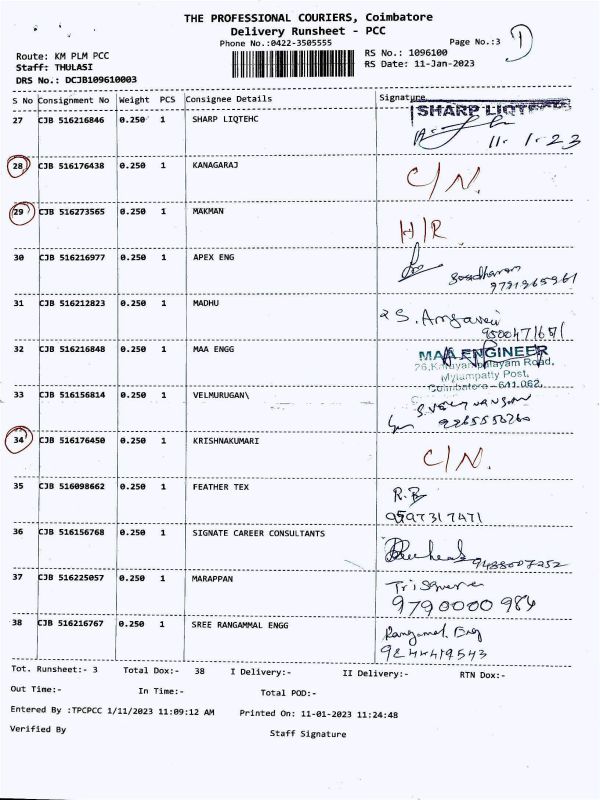 THE PROFESSIONAL COURIERS, Coimbatore
Delivery Runsheet - PCC
Phone No.:0422-3505555
Page No.:3 1
Route: KM PLM PCC
RS No.: 1096100
Staff: THULASI
RS Date: 11-Jan-2023
DRS No.: DCJB109610003
S No Consignment No Weight PCS Consignee Details Signature
27 CJB 516216846 0.250 1 SHARP LIQTEHC SHARP LIQTECH
11. 1. 23
28 CJB 516176438 0.250 1 KANAGARAJ C/N.
29 CJB 516273565 0.250 1 MAKMAN H/R.
30 CJB 516216977 0.250 1 APEX ENG
31 CJB 516212823 0.250 1 MADHU
32 CJB 516216848 0.250 1 MAA ENGG MAA ENGINEER
Mylampatty Post,
Coimbatore - 641 062.
33 CJB 516156814 0.250 1 VELMURUGAN\
34 CJB 516176450 0.250 1 KRISHNAKUMARI C/N.
35 CJB 516098662 0.250 1 FEATHER TEX R.B
9597317471
36 CJB 516156768 0.250 1 SIGNATE CAREER CONSULTANTS
9488007252
37 CJB 516225057 0.250 1 MARAPPAN Trisquare
9790000 986
38 CJB 516216767 0.250 1 SREE RANGAMMAL ENGG Rangamal Eng
9244419543
Tot. Runsheet:- 3 Total Dox:- 38 I Delivery:- II Delivery:- RTN Dox:-
Out Time:- In Time:- Total POD:-
Entered By :TPCPCC 1/11/2023 11:09:12 AM Printed On: 11-01-2023 11:24:48
Verified By Staff Signature